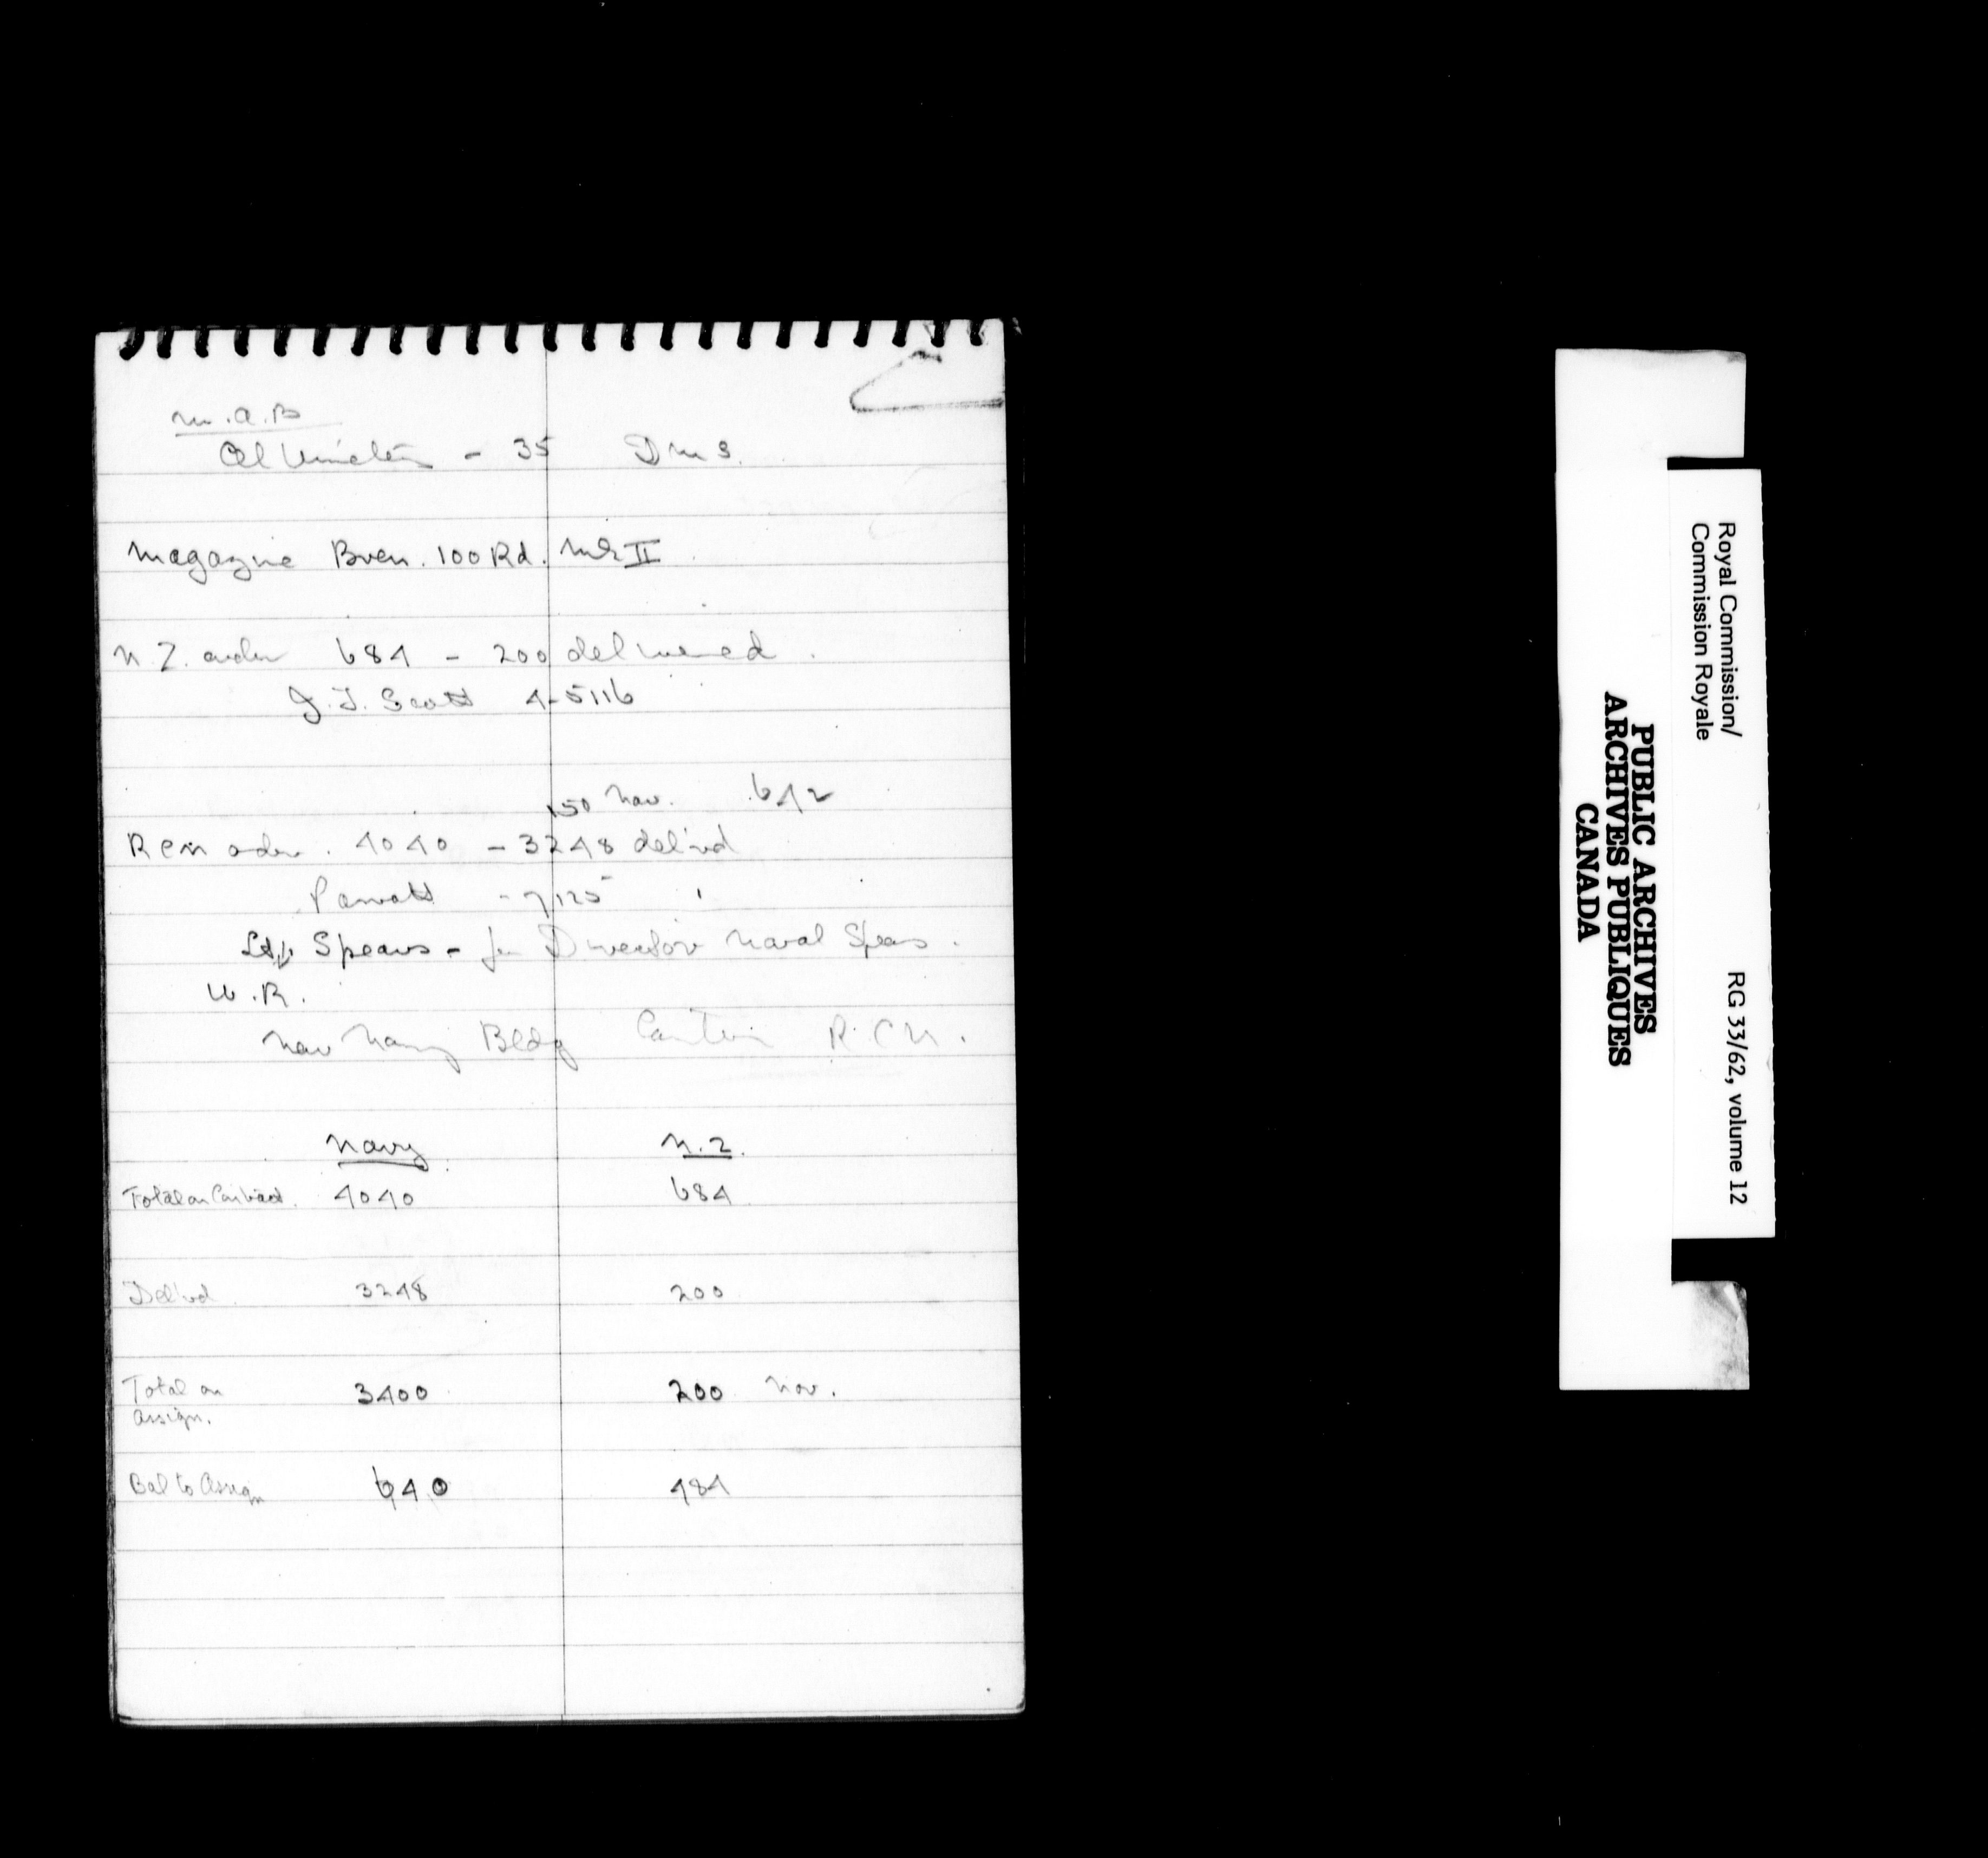 M.A.B
Col - 35 D M S.
Magazine Bren. 100 Rd. Mk II
N.Z. order 684 - 200 delivered.
J.T. Scott 4-5116
150 Nov. 642
RCN order. 4040 - 3248 del'vd
- 7125
Spears - for Director Naval
W.R.
New Navy Bldg R.C.N.
Navy N.Z.
Total on Contract. 4040 684
Del'vd 3248 200
Total on 3400 200 Nov.
assign.
Bal to Assign 640 484
Royal Commission/
Commission Royale
RG 33/62, volume 12
PUBLIC ARCHIVES
ARCHIVES PUBLIQUES
CANADA